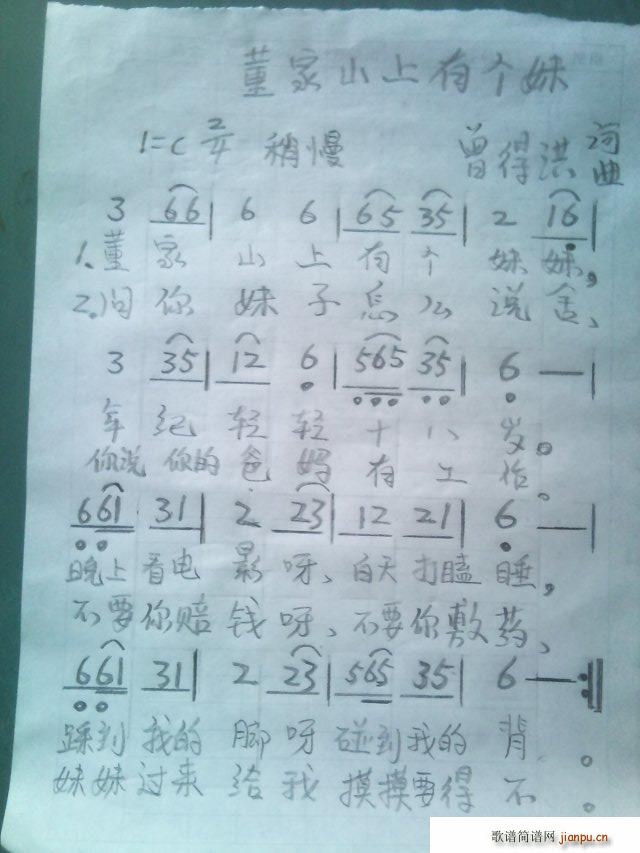 董家山上有个妹
1=C 2/4 稍慢 曾得洪 词曲
3 66| 6 6 |65 35| 2 16|
1.董 家 山 上 有 个 妹 妹,
2.问 你 妹 子 怎 么 说 舍、
3 35| 12 6 |565 35| 6 —|
年 纪 轻 轻 十 八 岁。
你说 你的 爸 妈 有 工 作。
661 31| 2 23| 12 21| 6 —|
晚上 看电 影 呀、白天 打瞌 睡,
不要 你赔 钱 呀、不要 你敷 药、
661 31| 2 23| 565 35| 6 —:|
踩到 我的 脚 呀 碰到 我的 背。
妹妹 过来 给 我 摸摸 要得 不。
歌谱简谱网 jianpu.cn